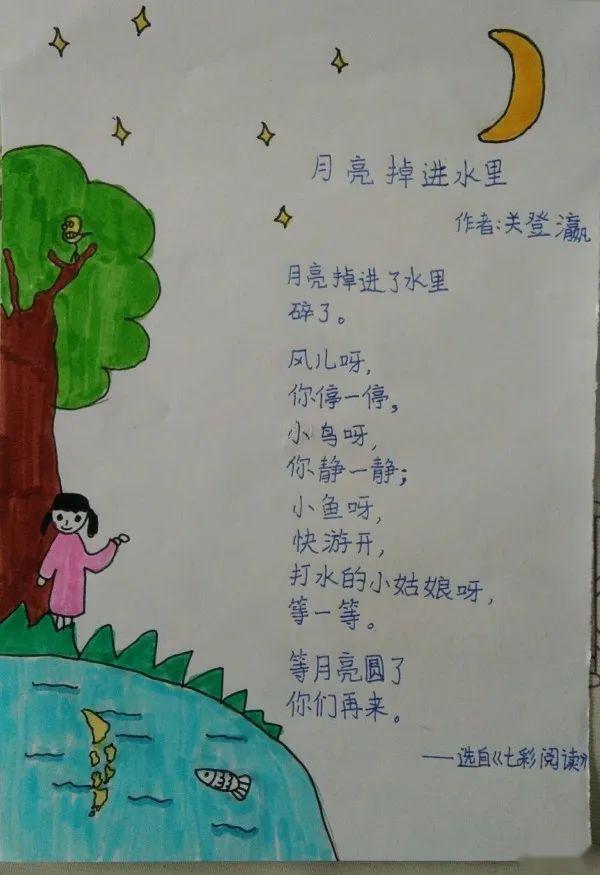 月亮掉进水里
作者:关登瀛
月亮掉进了水里
碎了。
风儿呀,
你停一停,
小鸟呀,
你静一静;
小鱼呀,
快游开,
打水的小姑娘呀,
等一等。
等月亮圆了
你们再来。
——选自《七彩阅读》